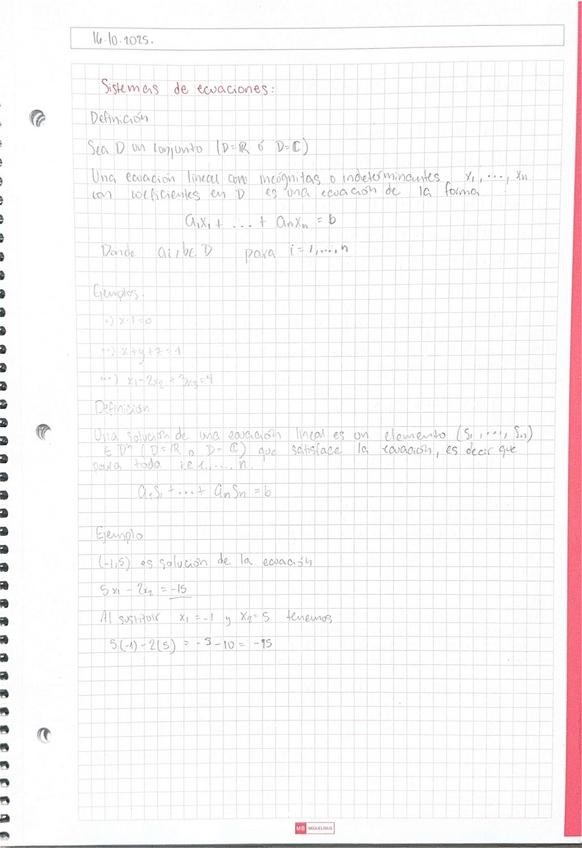 14-10-2025.
Sistemas de ecuaciones:
Definición
Sea D un conjunto (D=ℝ ó D=ℂ)
Una ecuación lineal con incógnitas o indeterminantes x₁, ..., xₙ
con coeficientes en D es una ecuación de la forma
a₁x₁ + ... + aₙxₙ = b
Donde ai, b∈ D para i=1,...,n
Ejemplos.
x-1=0
x+y+z=1
x₁-2x₂+3x₃=4
Definición
Una solución de una ecuación lineal es un elemento (s₁, ..., sₙ)
∈ Dⁿ (D=ℝ o D=ℂ) que satisface la ecuación, es decir que
para toda i∈1,...,n
a₁s₁ + ... + aₙsₙ = b
Ejemplo
(-1,5) es solución de la ecuación
5x₁ - 2x₂ = -15
Al sustituir x₁=-1 y x₂=5 tenemos
5(-1)-2(5) = -5-10 = -15
MB MIQUELRIUS